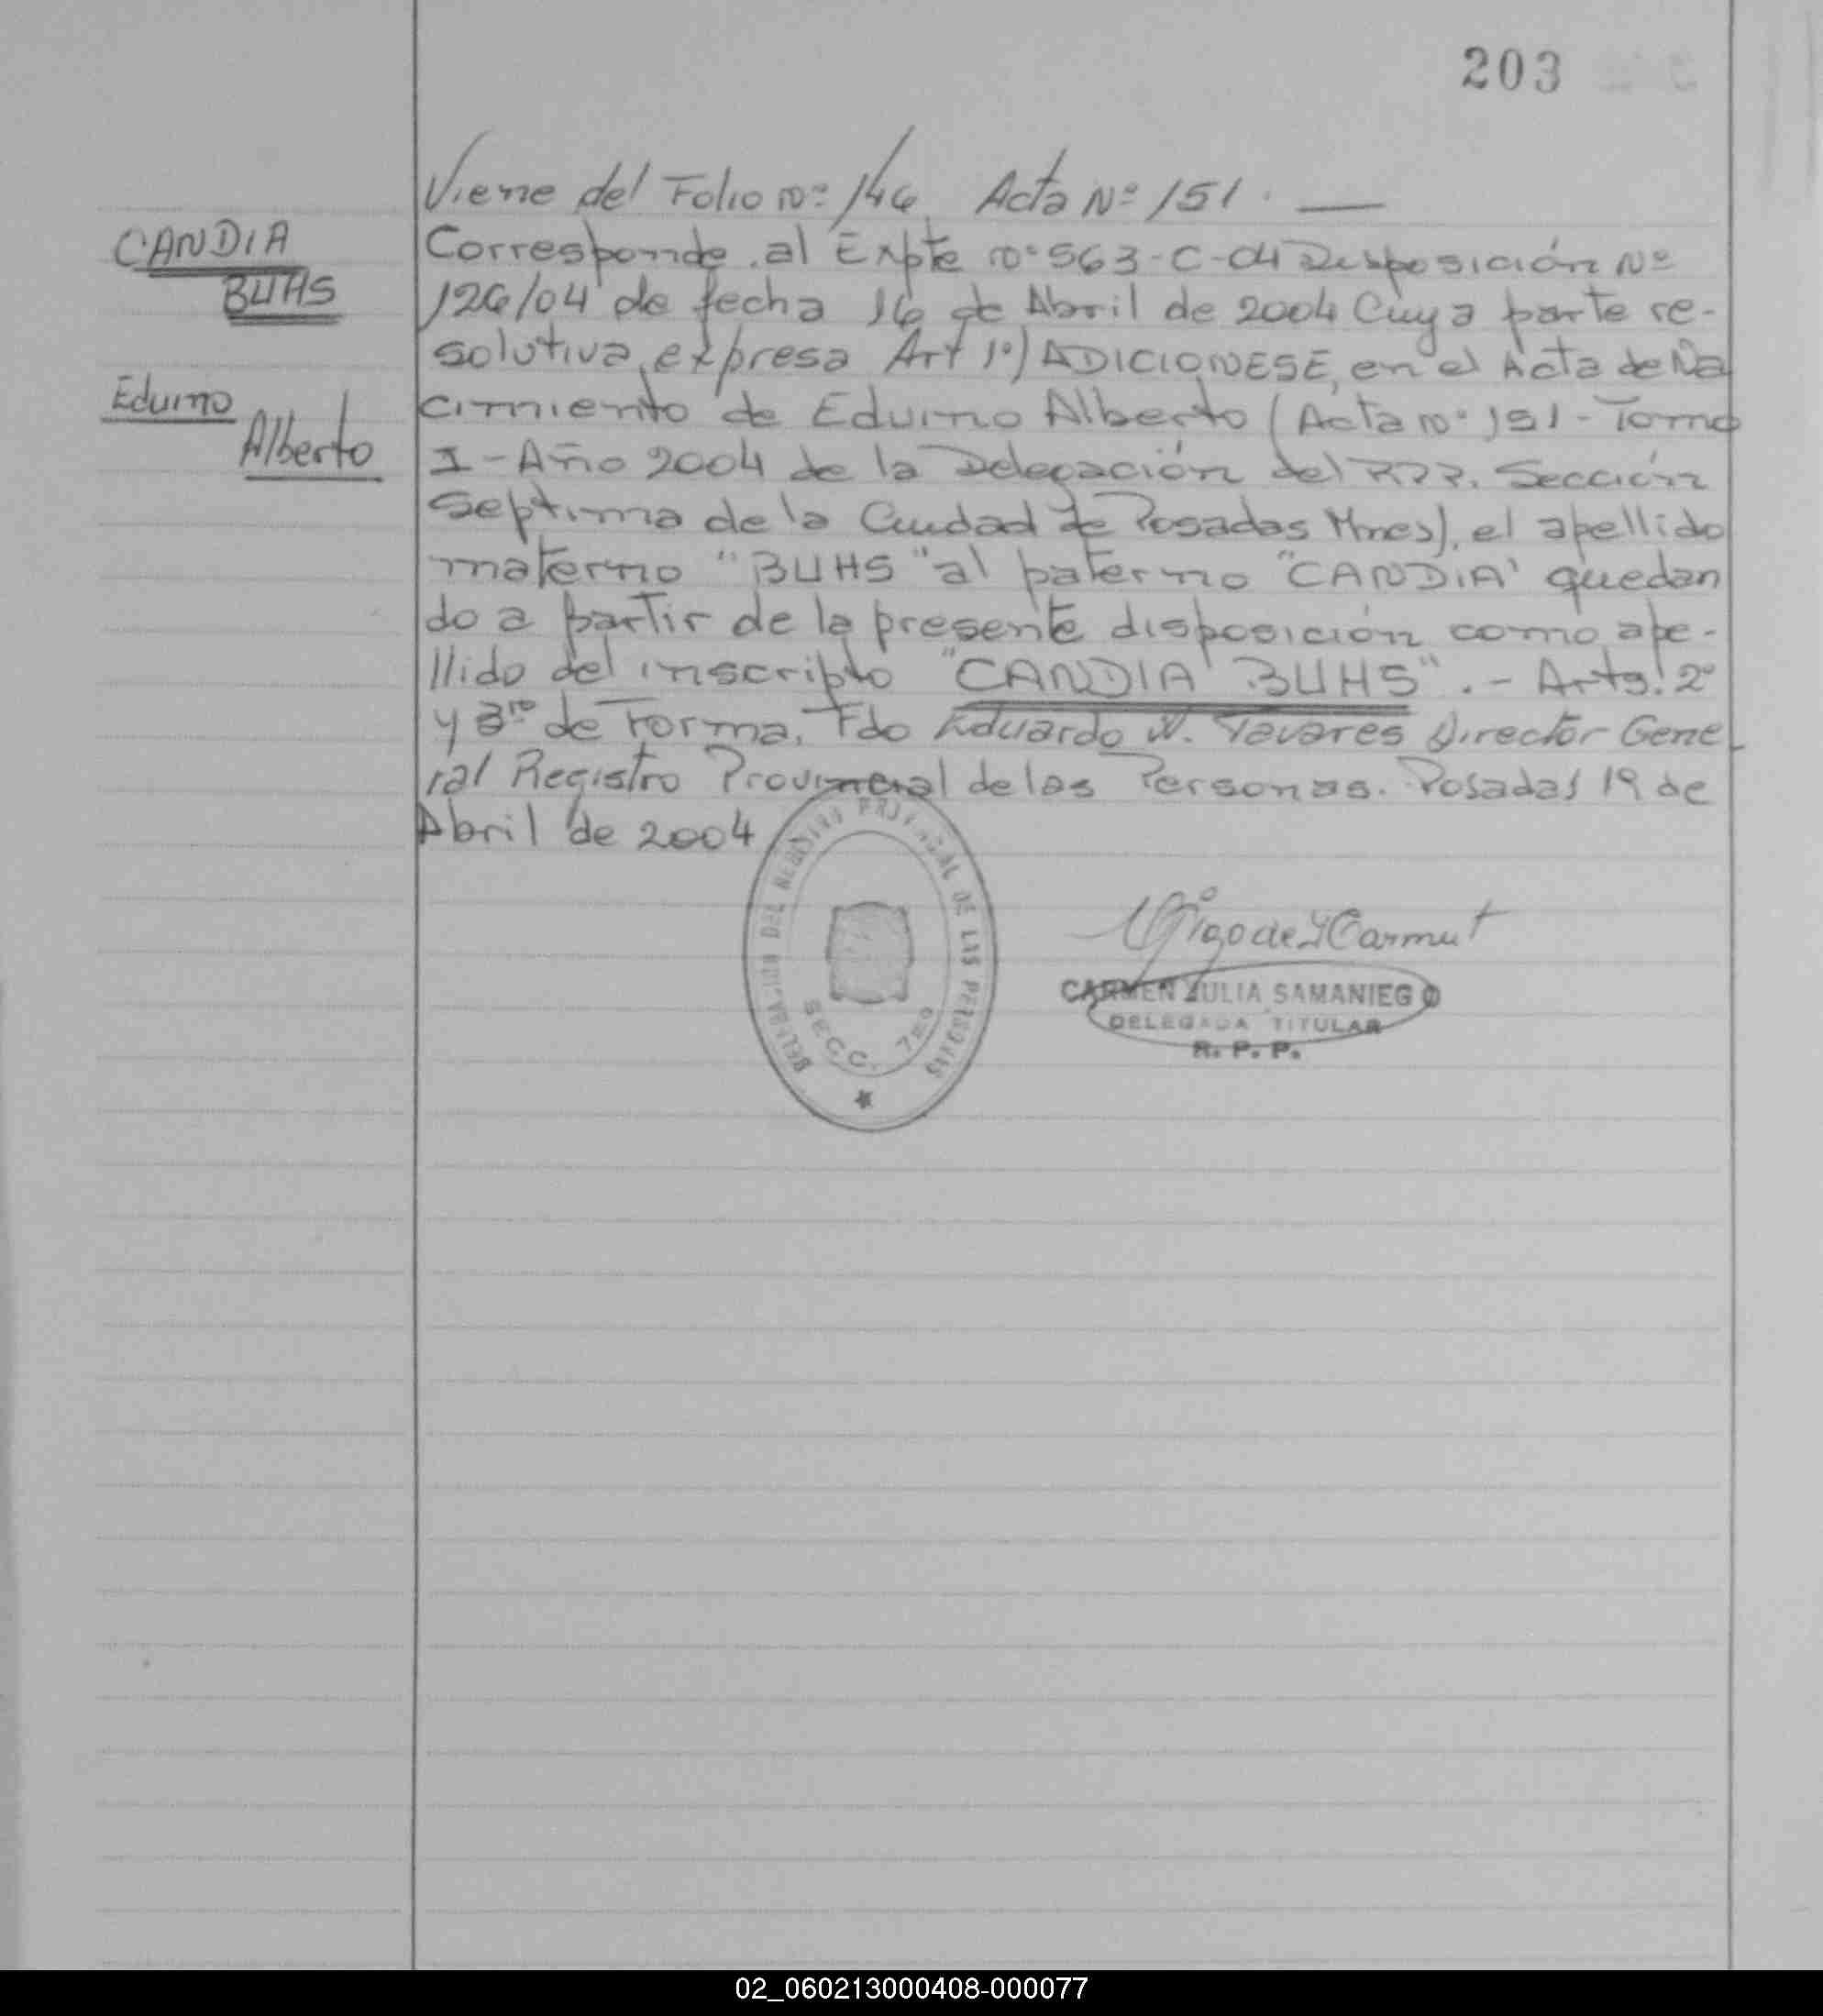 203
Viene del Folio Nº 146 Acta Nº 151. —
CANDIA
BUHS
Eduino
Alberto
Corresponde al Expte Nº 563-C-04 Disposición Nº
126/04 de fecha 16 de Abril de 2004 Cuya parte re-
solutiva, expresa Art 1º) ADICIONESE, en el Acta de Na
cimiento de Eduino Alberto (Acta Nº 151 - Tomo
I - Año 2004 de la Delegación del R.P.P. Sección
Septima de la Ciudad de Posadas Mnes), el apellido
materno "BUHS" al paterno "CANDIA" quedan
do a partir de la presente disposición como ape-
llido del inscripto "CANDIA BUHS". - Arts. 2º
y 3ro de Forma. Fdo Eduardo N. Tavares Director Gene
ral Registro Provincial de las Personas. Posadas 19 de
Abril de 2004
DELEGACION DEL REGISTRO PROVINCIAL DE LAS PERSONAS
SECC. 7ma
CARMEN JULIA SAMANIEGO
DELEGADA TITULAR
R. P. P.
02_060213000408-000077